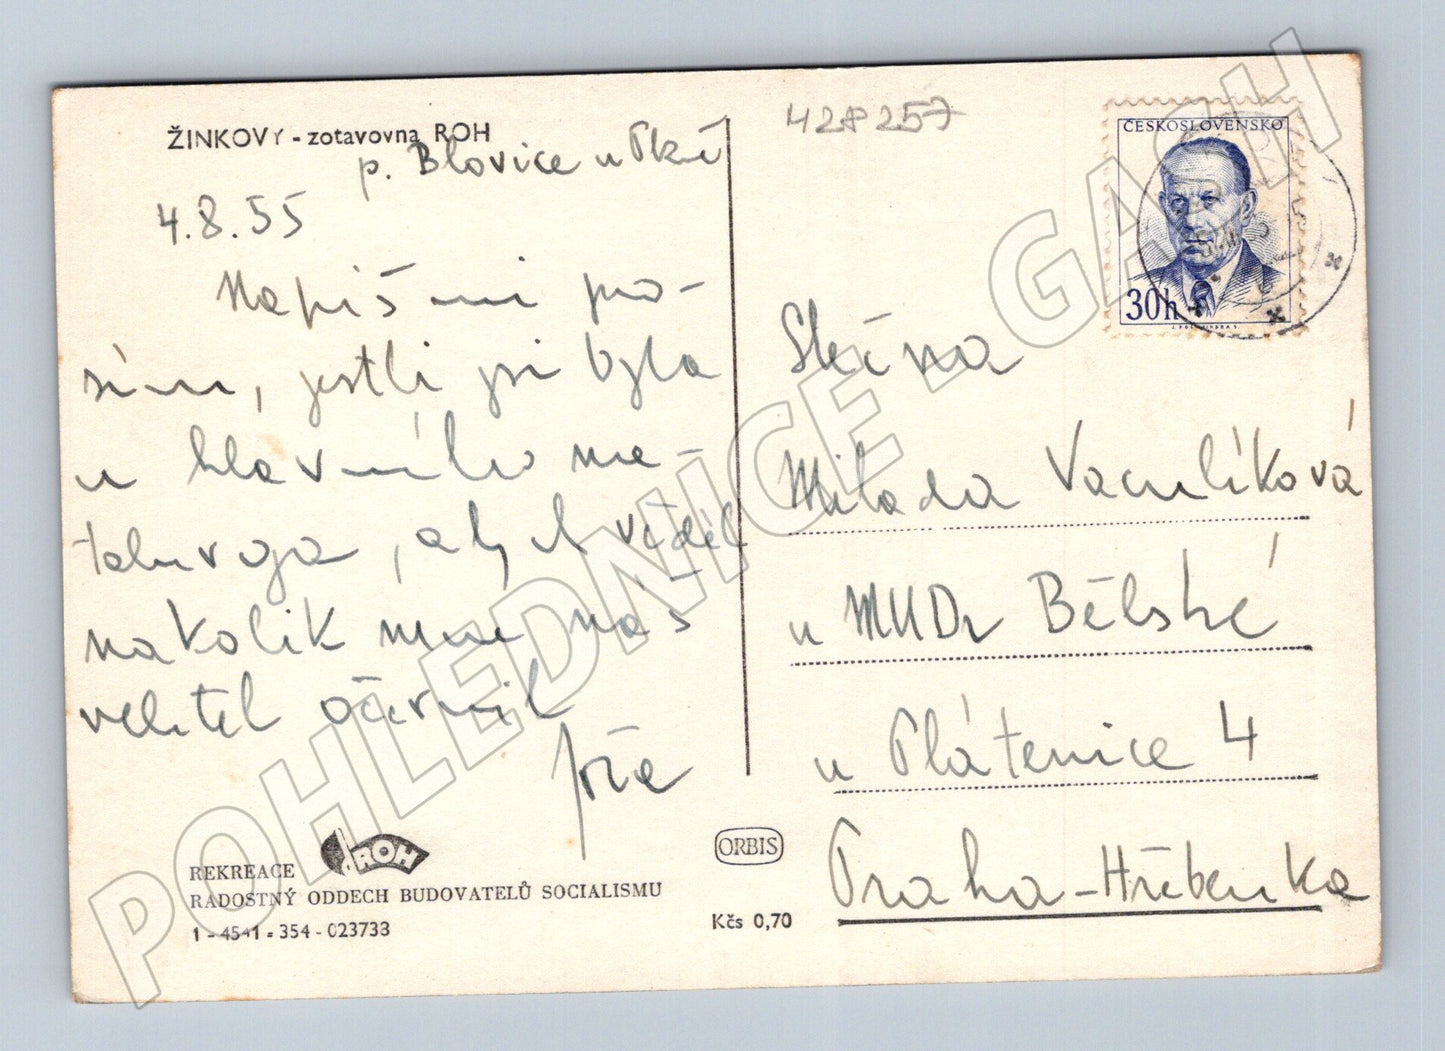 ŽINKOVY - zotavovna ROH
p. Blovice u Plzně
4.8.55
Napiš mi pro-
sím, jestli jsi byla
u hlavního me-
, abych věděl
nakolik mne náš
velitel očernil
Jóža
REKREACE ROH
RADOSTNÝ ODDECH BUDOVATELŮ SOCIALISMU
1 - 4541 - 354 - 023733
ORBIS
Kčs 0,70
428257
ČESKOSLOVENSKO
30h
Slečna
Milada Vaculíková
u MUDr Bělské
u Plátenice 4
Praha-Hřebenka
POHLEDNICE - GASH